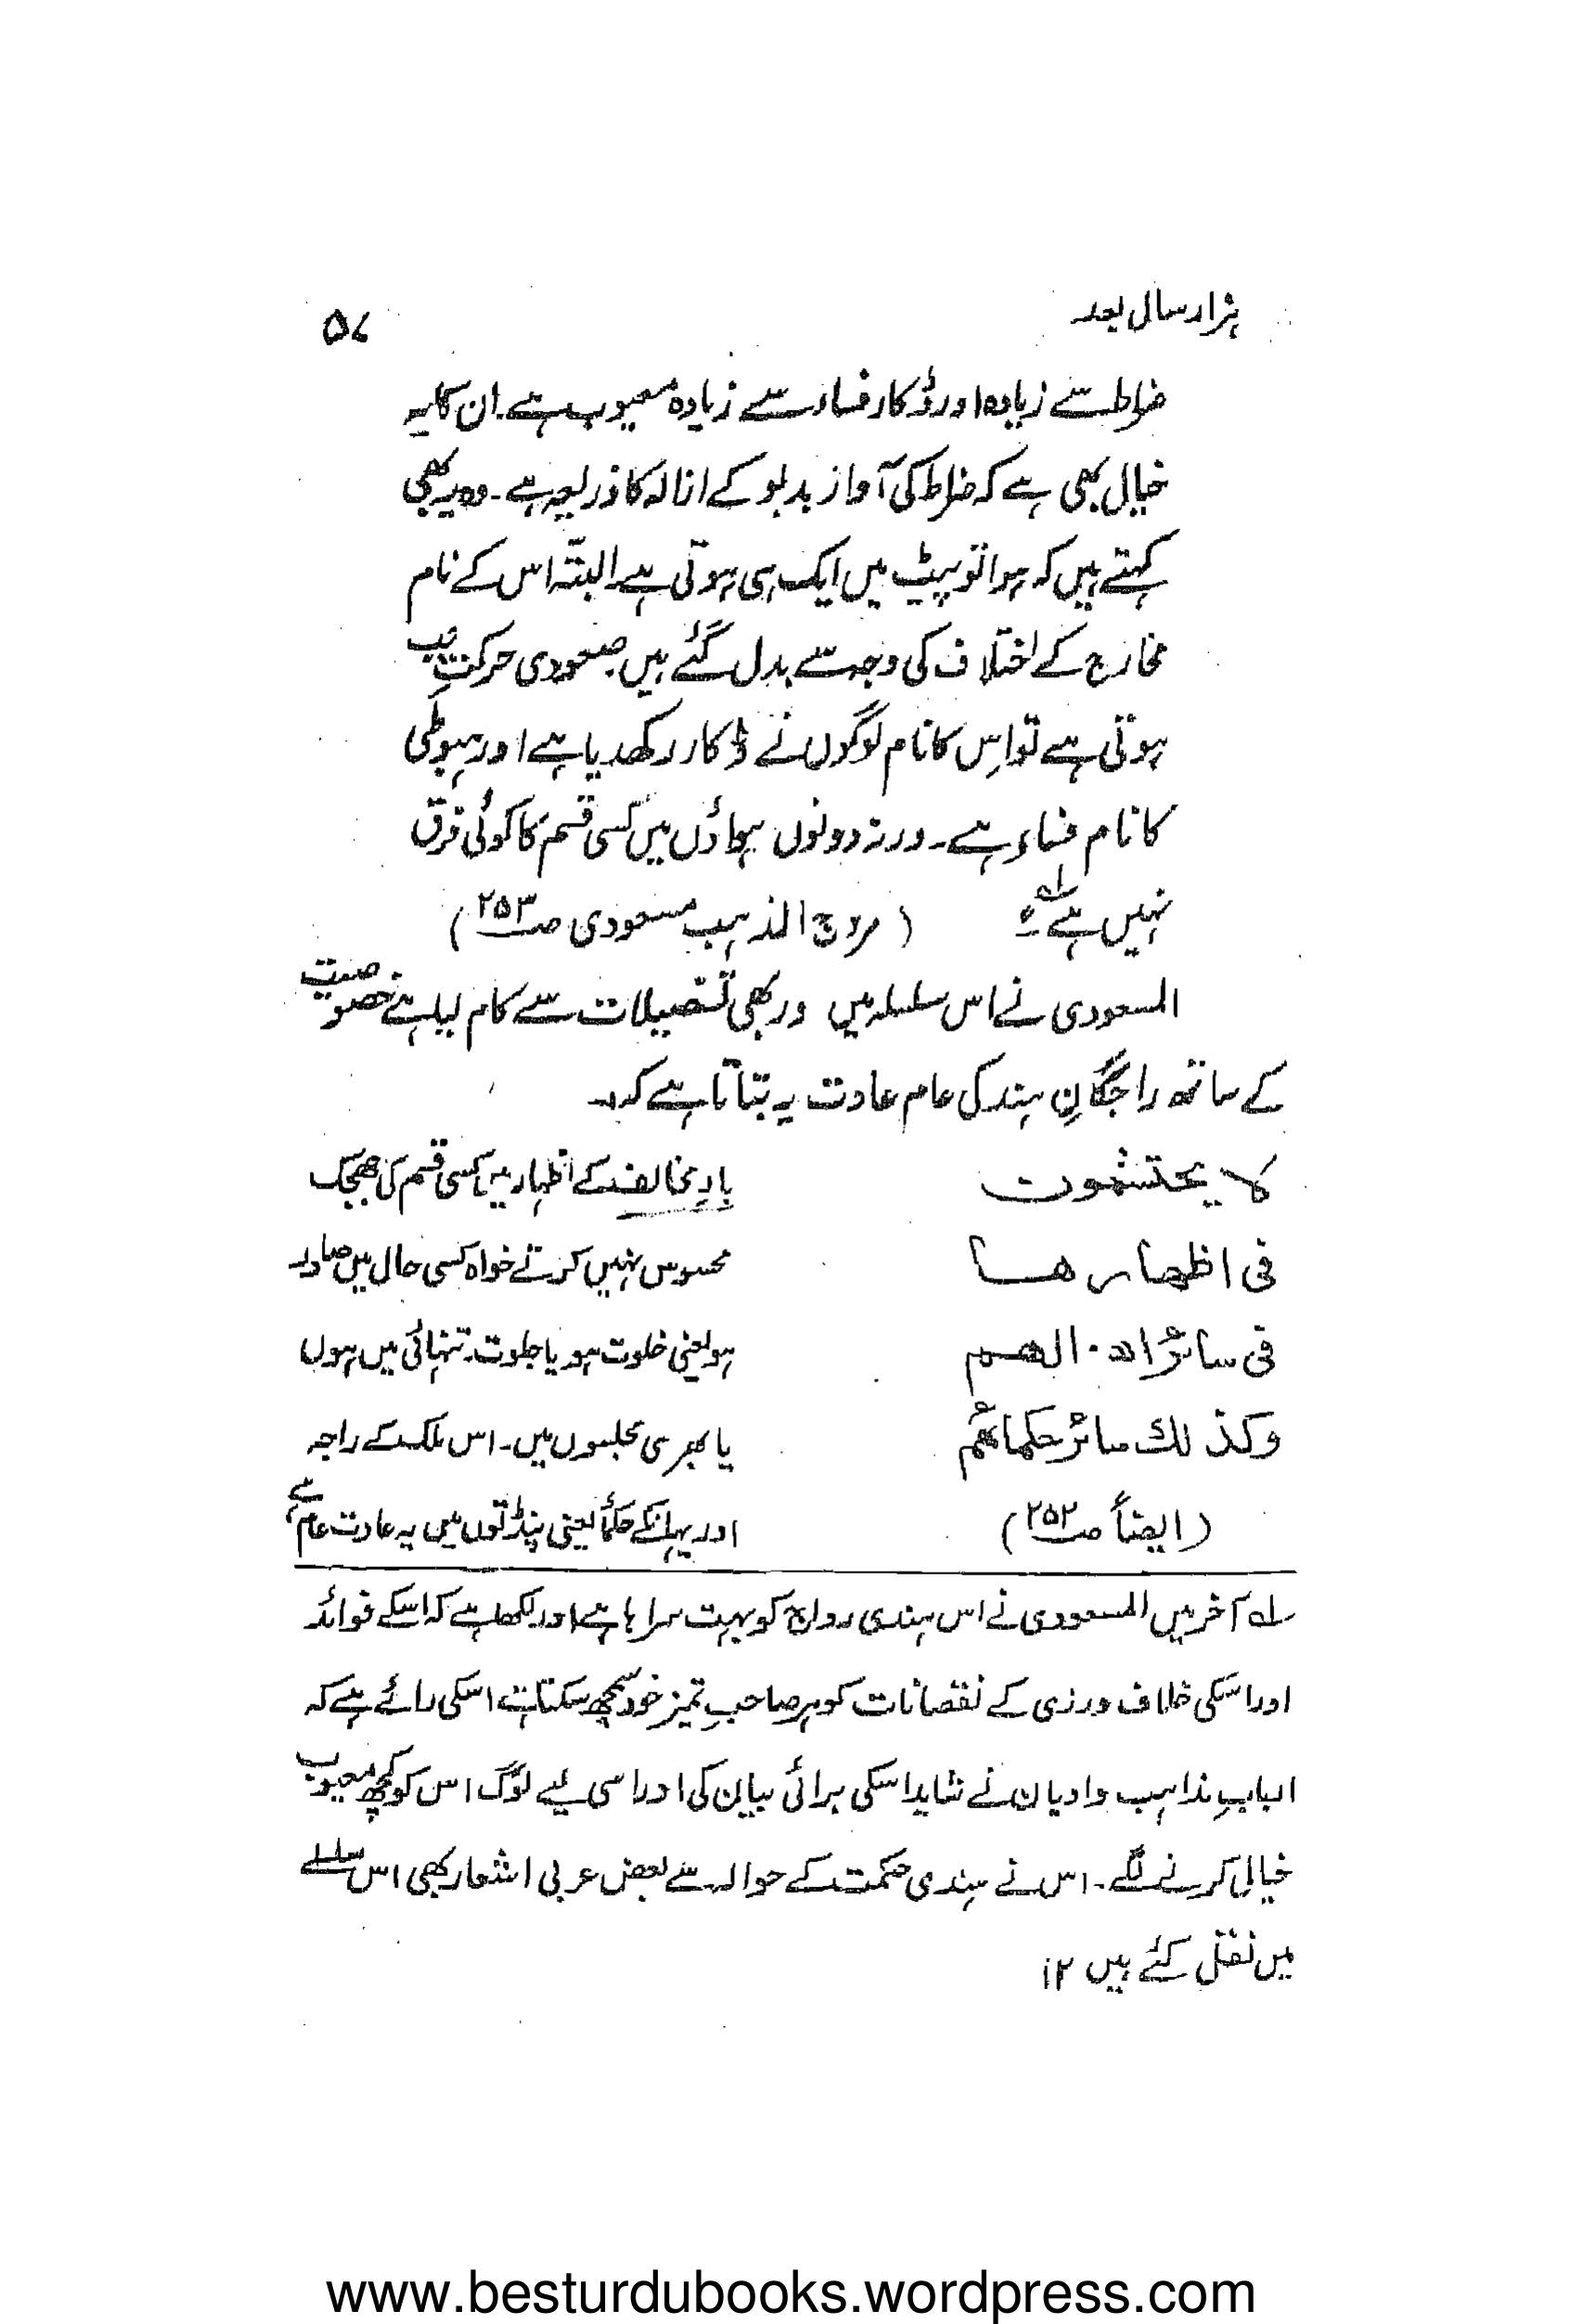 ہزار سال بعد
۵۷
ضراط سے زیادہ اور ڈکار فساء سے زیادہ معیوب ہے۔ ان کا یہ
خیال بھی ہے کہ ضراط کی آواز بدبو کے ازالہ کا ذریعہ ہے۔ وہ یہ بھی
کہتے ہیں کہ ہوا تو پیٹ میں ایک ہی ہوتی ہے البتّہ اس کے نام
مخارج کے اختلاف کی وجہ سے بدل گئے ہیں صعودی حرکت جب
ہوتی ہے تو اِس کا نام لوگوں نے ڈکار رکھدیا ہے اور ہبوطی
کا نام فساء ہے۔ ورنہ دونوں ہواؤں میں کسی قسم کا کوئی فرق
نہیں ہے لہ (مروج الذہب مسعودی صـ۲۵۳)
المسعودی نے اس سلسلہ میں اور بھی تفصیلات سے کام لیا ہے خصوصیت
کے ساتھ راجگانِ ہند کی عام عادت یہ بتاتا ہے کہ
لا یحتشمون
فی اظهارها
فی سائر احوالهم
وکذلك سائر حکمائهم
(ایضاً صـ۲۵۲)
بادِ مخالف کے اظہار میں کسی قسم کی جھجک
محسوس نہیں کرتے خواہ کسی حال میں صادر
ہو یعنی خلوت ہو یا جلوت۔ تنہائی میں ہوں
یا بھری مجلسوں میں۔ اس ملک کے راجہ
اور یہاں کے حکماٴ یعنی پنڈتوں میں یہ عادت عام ہے
لہ آخر میں المسعودی نے اس ہندی رواج کو بہت سراہا ہے اور لکھا ہے کہ اسکے فوائد
اور اسکی خلاف ورزی کے نقصانات کو ہر صاحبِ تمیز خود سمجھ سکتا ہے اسکی رائے ہے کہ
اربابِ مذاہب وادیان نے شاید اسکی برائی بیان کی اور اسی لیے لوگ اس کو کچھ معیوب
خیال کرنے لگے۔ اس نے ہندی حکمت کے حوالہ سے بعض عربی اشعار بھی اس سلسلے
میں نقل کئے ہیں ۱۲
www.besturdubooks.wordpress.com